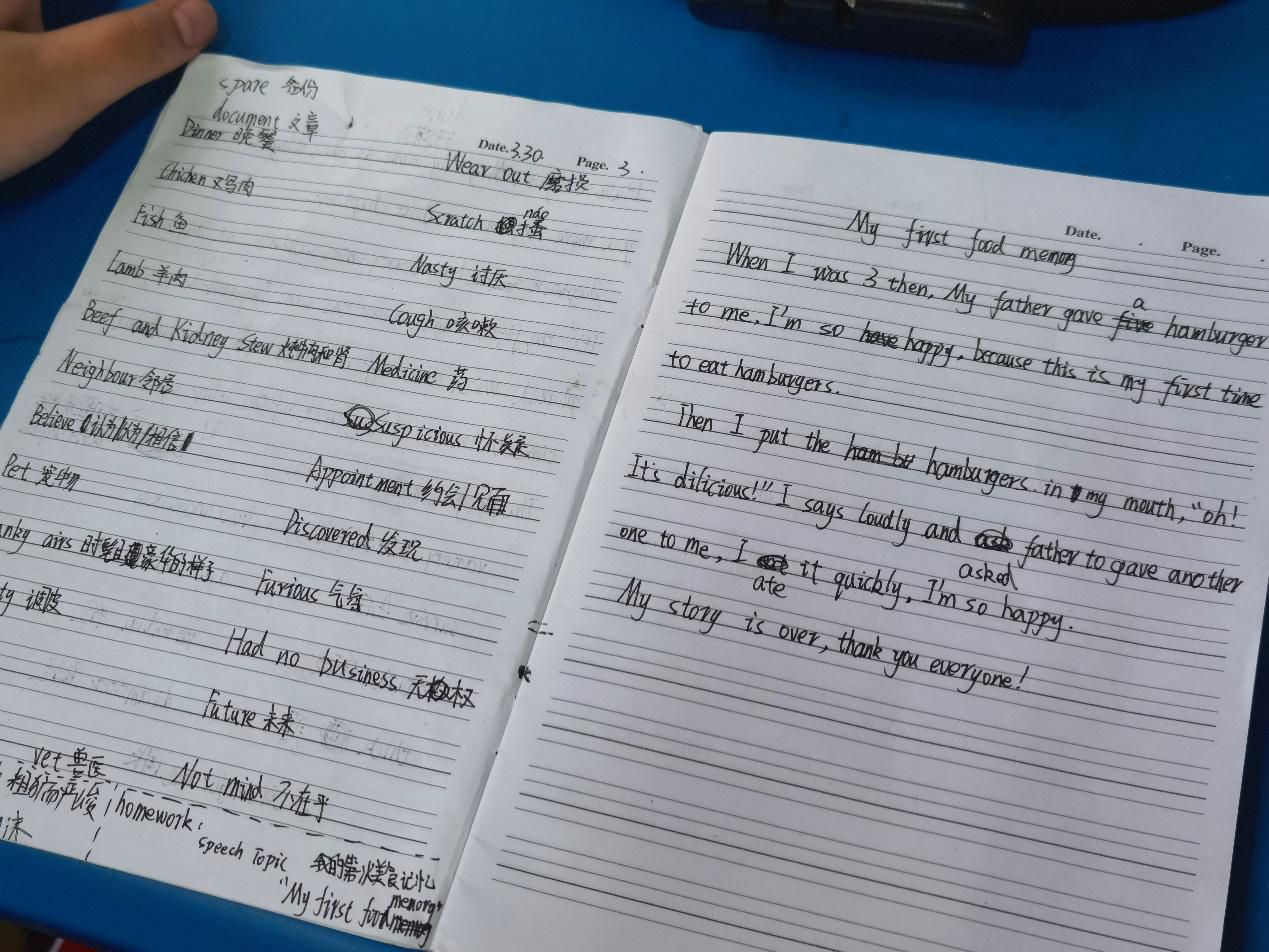 spare 备份
document 文章
Dinner 晚餐
Date. 3.30. Page. 3.
Wear out 磨损
Chichen 鸡肉
Scratch 搔 náo
Fish 鱼
Nasty 讨厌
Lamb 羊肉
Cough 咳嗽
Beef and Kidney stew
Medicine 药
Neighbour 邻居
Suspicious 怀疑
Believe 认为/相信
Appointment 约会/
Pet 宠物
Discovered 发现
anky airs 的样子
Furious 气
ty 调皮
Had no business 无权
Future 未来
vet 兽医
Not mind 不在乎
homework:
speech Topic 我的第一次美食记忆
"My first food memory"
Date. Page.
My first food memory
When I was 3 then, My father gave a hamburger
to me, I'm so happy, because this is my first time
to eat hamburgers.
Then I put the hamburgers. in my mouth, "oh!
It's dilicious!" I says loudly and asked father to gave another
one to me, I ate it quickly, I'm so happy.
My story is over, thank you everyone!